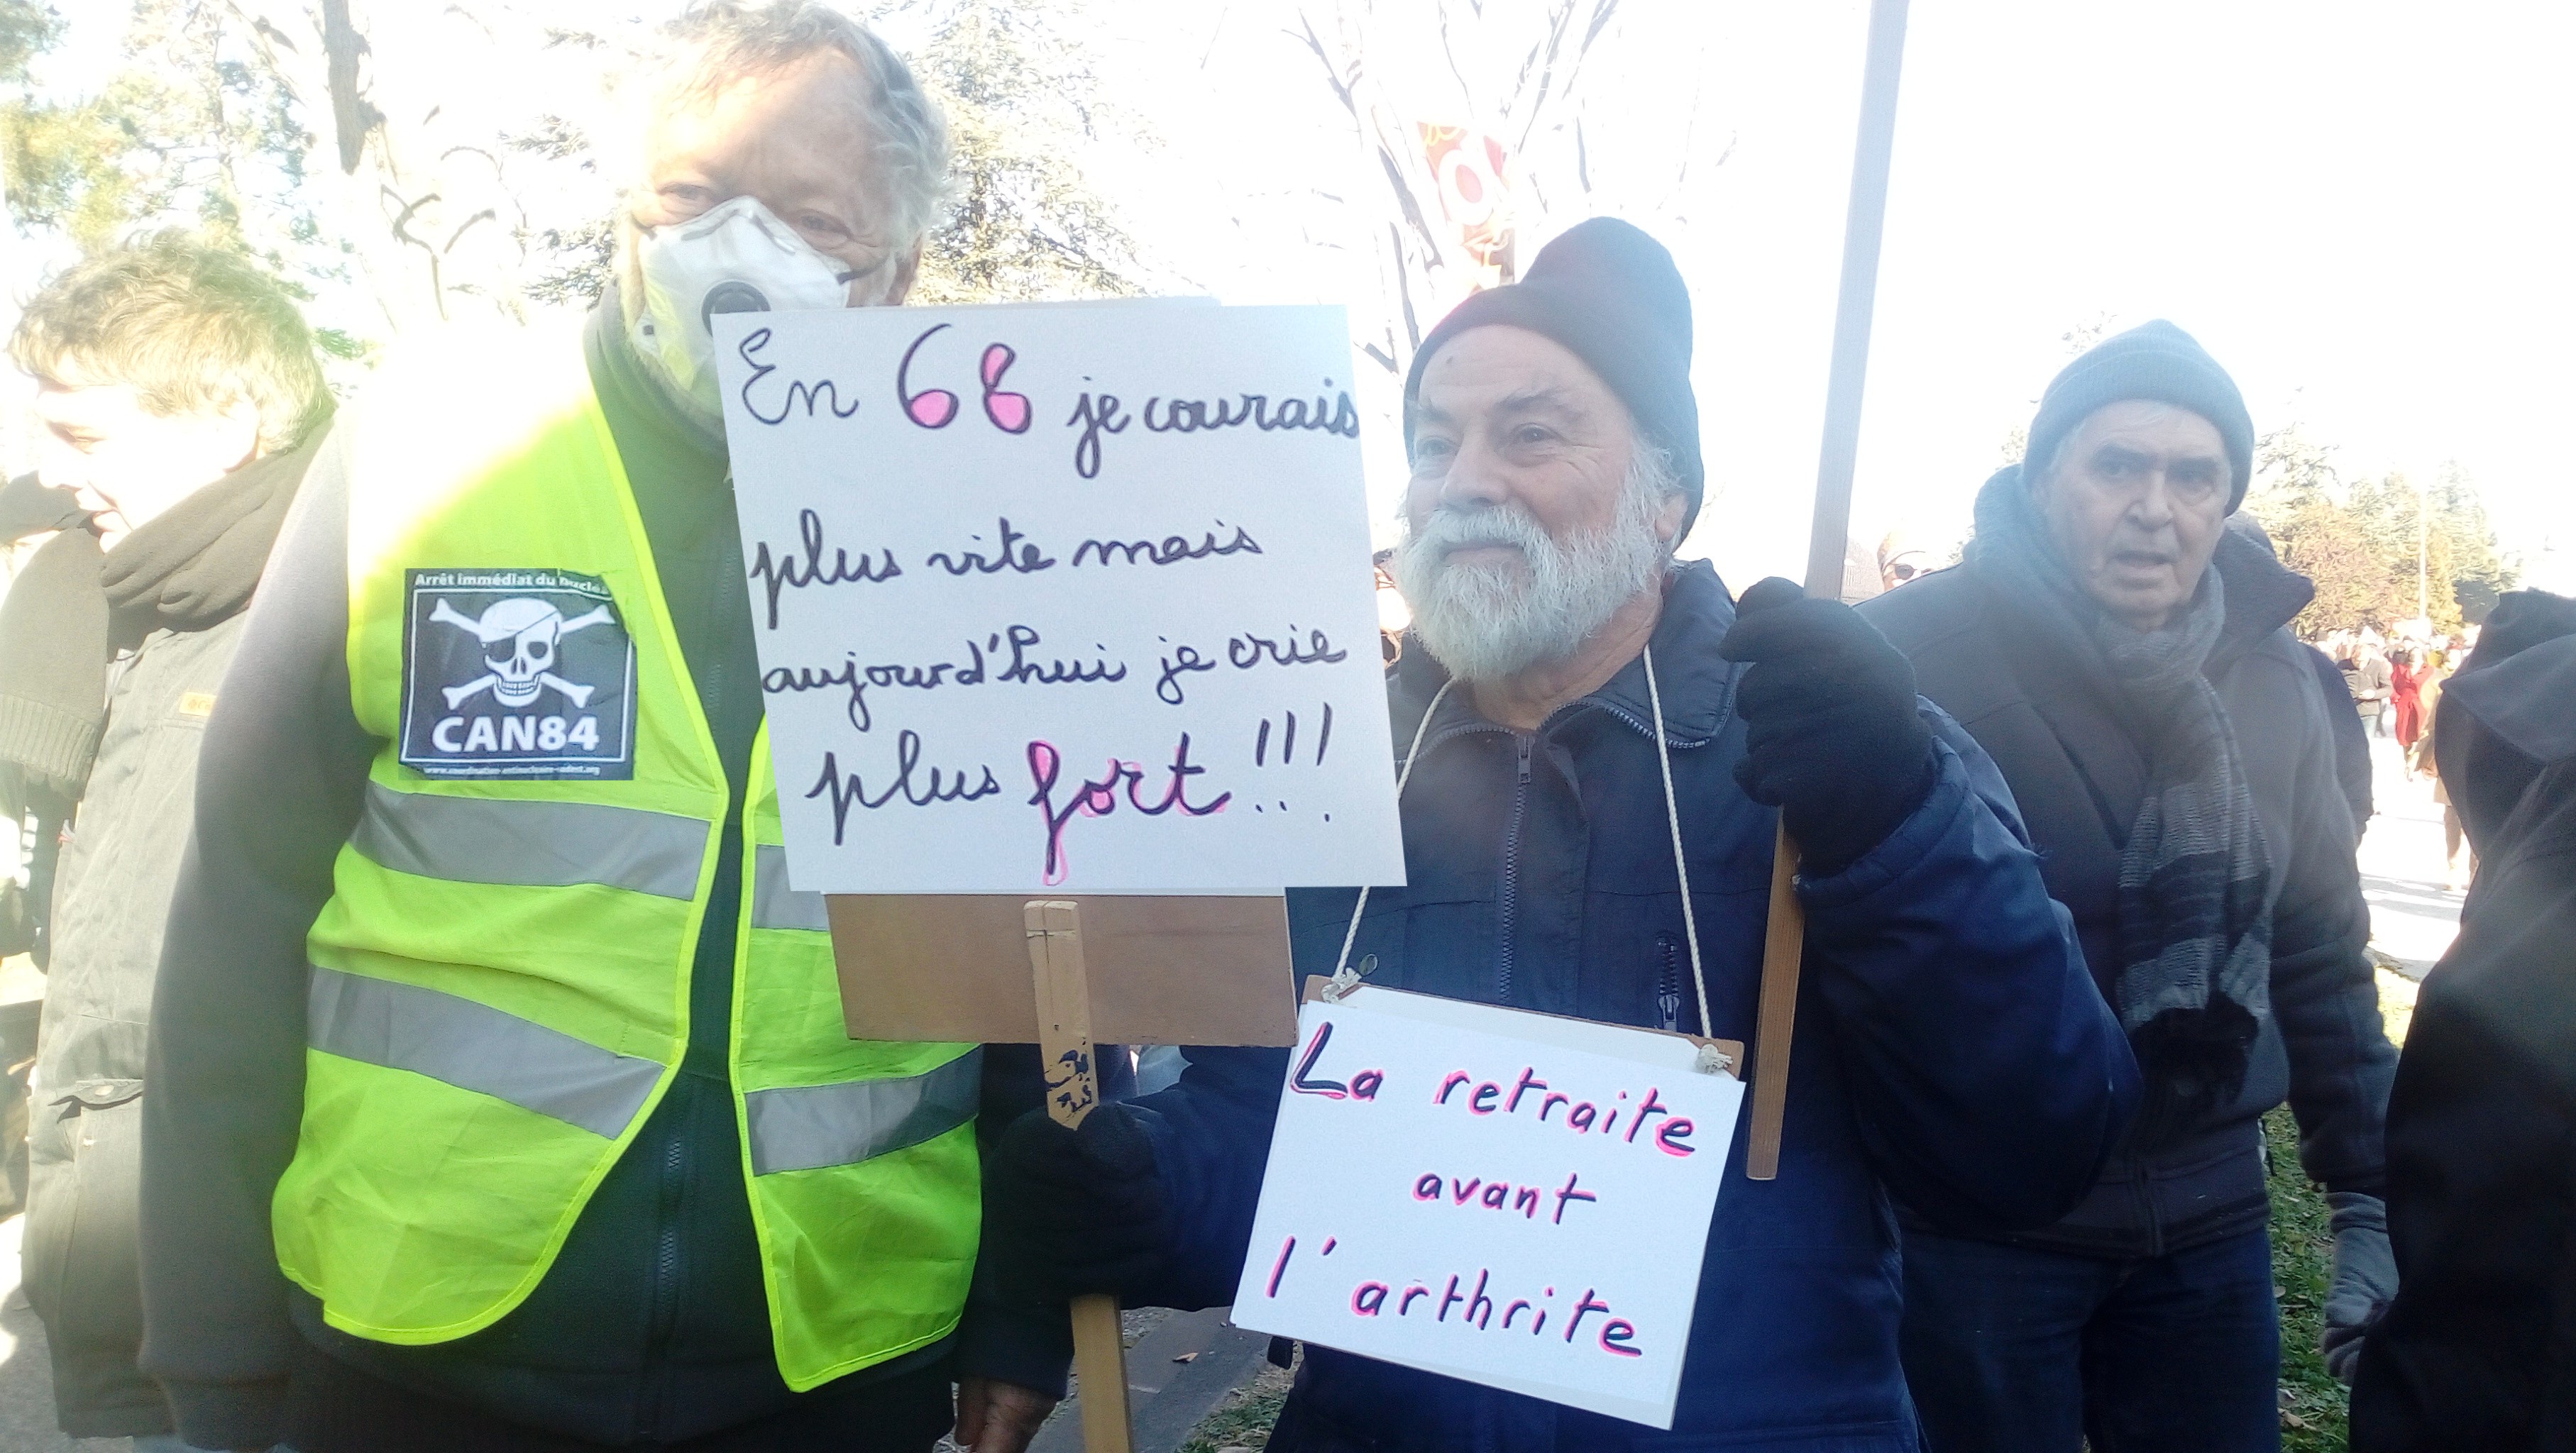 En 68 je courais
plus vite mais
aujourd'hui je crie
plus fort !!!
Arrêt immédiat du nucléa
CAN84
www.coordination-antinucleaire-sudest.org
La retraite
avant
l'arthrite